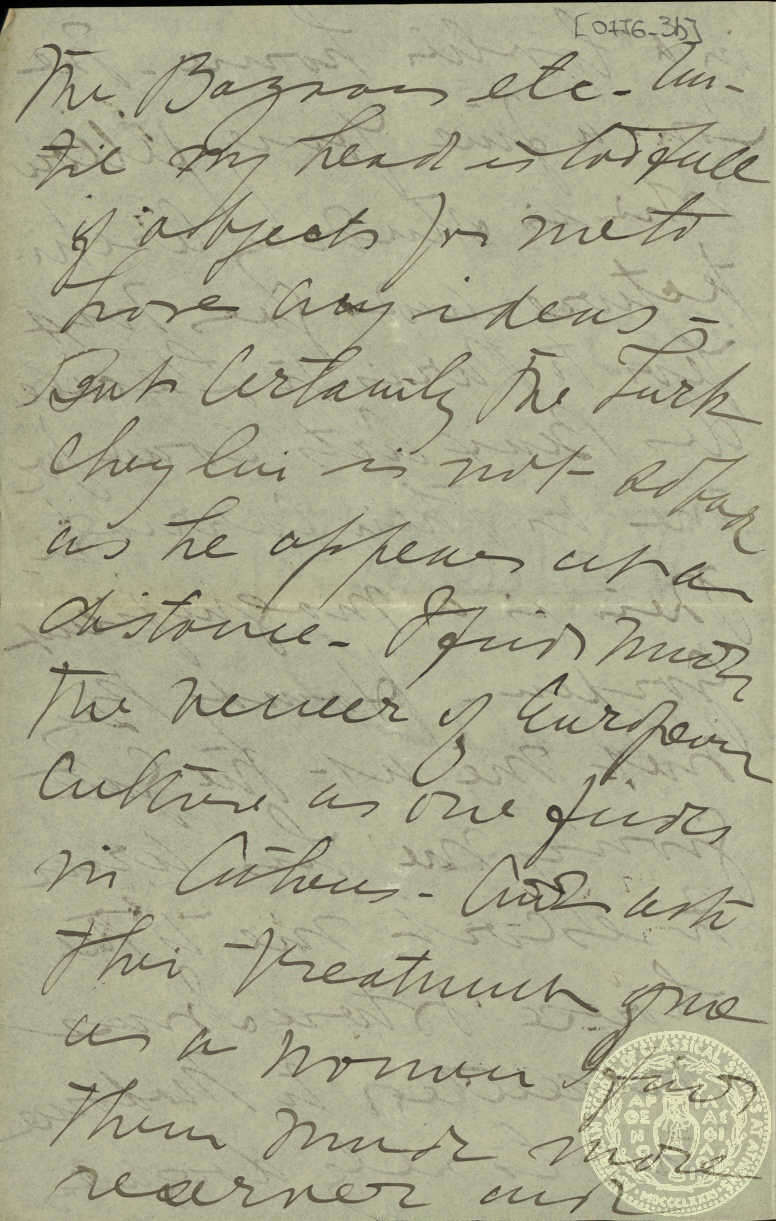 [0776-3b]
The Bazaars etc - Un-
til my head is too full
of objects for me to
have any ideas -
But certainly the Turk
chez lui is not so bad
as he appears at a
distance - I find much
the veneer of European
culture as one finds
in Athens - And as to
their treatment of me
as a woman I find
them much more
reserved and